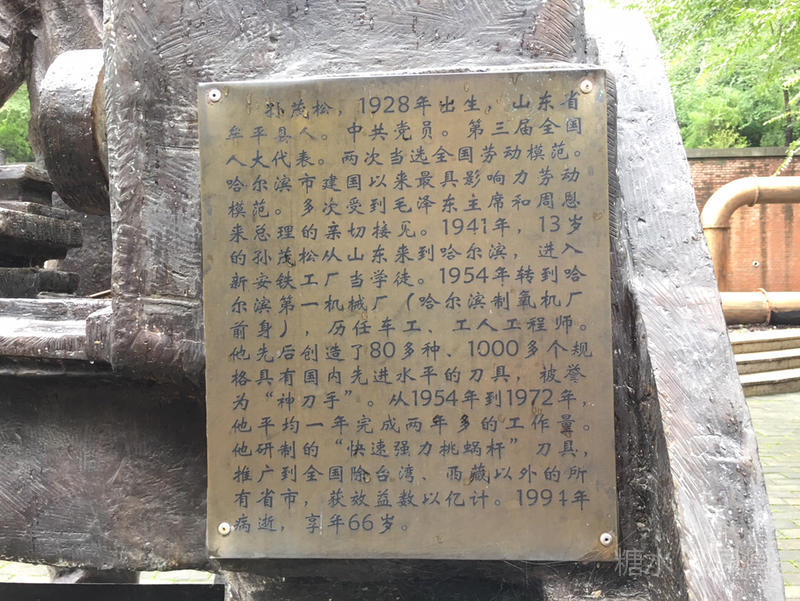 孙茂松，1928年出生，山东省
牟平县人。中共党员。第三届全国
人大代表。两次当选全国劳动模范。
哈尔滨市建国以来最具影响力劳动
模范。多次受到毛泽东主席和周恩
来总理的亲切接见。1941年，13岁
的孙茂松从山东来到哈尔滨，进入
新安铁工厂当学徒。1954年转到哈
尔滨第一机械厂（哈尔滨制氧机厂
前身），历任车工、工人工程师。
他先后创造了80多种、1000多个规
格具有国内先进水平的刀具，被誉
为“神刀手”。从1954年到1972年，
他平均一年完成两年多的工作量。
他研制的“快速强力挑蜗杆”刀具，
推广到全国除台湾、西藏以外的所
有省市，获效益数以亿计。1994年
病逝，享年66岁。
糖水